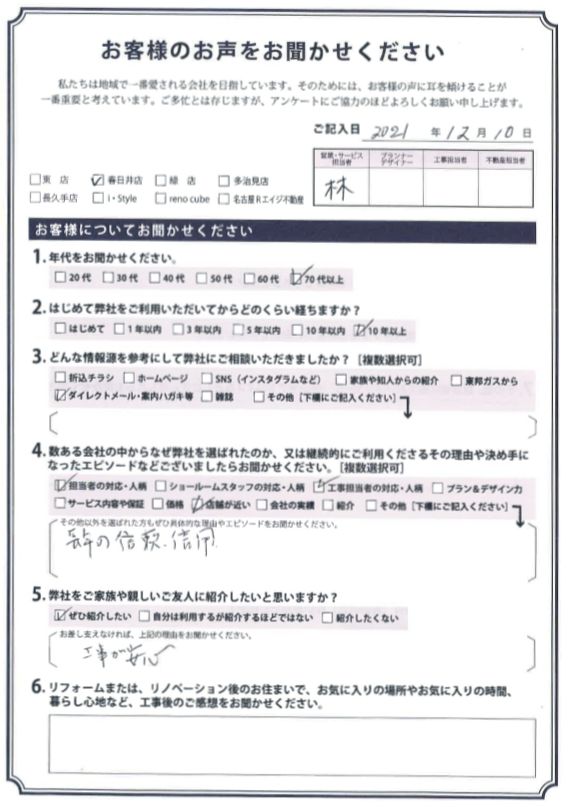 お客様のお声をお聞かせください
私たちは地域で一番愛される会社を目指しています。そのためには、お客様の声に耳を傾けることが
一番重要と考えています。ご多忙とは存じますが、アンケートにご協力のほどよろしくお願い申し上げます。
ご記入日 2021 年 12 月 10 日
営業・サービス担当者 プランナーデザイナー 工事担当者 不動産担当者
林
□東 店 ☑春日井店 □緑 店 □多治見店
□長久手店 □i・Style □reno cube □名古屋Rエイジ不動産
お客様についてお聞かせください
1. 年代をお聞かせください。
□20代 □30代 □40代 □50代 □60代 ☑70代以上
2. はじめて弊社をご利用いただいてからどのくらい経ちますか？
□はじめて □1年以内 □3年以内 □5年以内 □10年以内 ☑10年以上
3. どんな情報源を参考にして弊社にご相談いただきましたか？［複数選択可］
□折込チラシ □ホームページ □SNS（インスタグラムなど） □家族や知人からの紹介 □東邦ガスから
☑ダイレクトメール・案内ハガキ等 □雑誌 □その他［下欄にご記入ください］
4. 数ある会社の中からなぜ弊社を選ばれたのか、又は継続的にご利用くださるその理由や決め手に
なったエピソードなどございましたらお聞かせください。［複数選択可］
☑担当者の対応・人柄 □ショールームスタッフの対応・人柄 ☑工事担当者の対応・人柄 □プラン＆デザイン力
□サービス内容や保証 □価格 ☑店舗が近い □会社の実績 □紹介 □その他［下欄にご記入ください］
その他以外を選ばれた方もぜひ具体的な理由やエピソードをお聞かせください。
長年の信頼、信用
5. 弊社をご家族や親しいご友人に紹介したいと思いますか？
☑ぜひ紹介したい □自分は利用するが紹介するほどではない □紹介したくない
お差し支えなければ、上記の理由をお聞かせください。
工事が安心
6. リフォームまたは、リノベーション後のお住まいで、お気に入りの場所やお気に入りの時間、
暮らし心地など、工事後のご感想をお聞かせください。